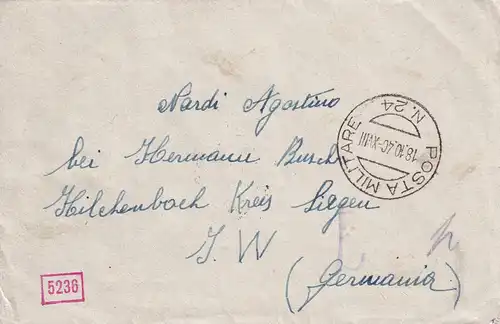 Nardi Agostino
bei Hermann Busch
Hilchenbach Kreis Siegen
J. W
(Germania)
POSTA MILITARE N. 24
18.10.40-XVIII
5236